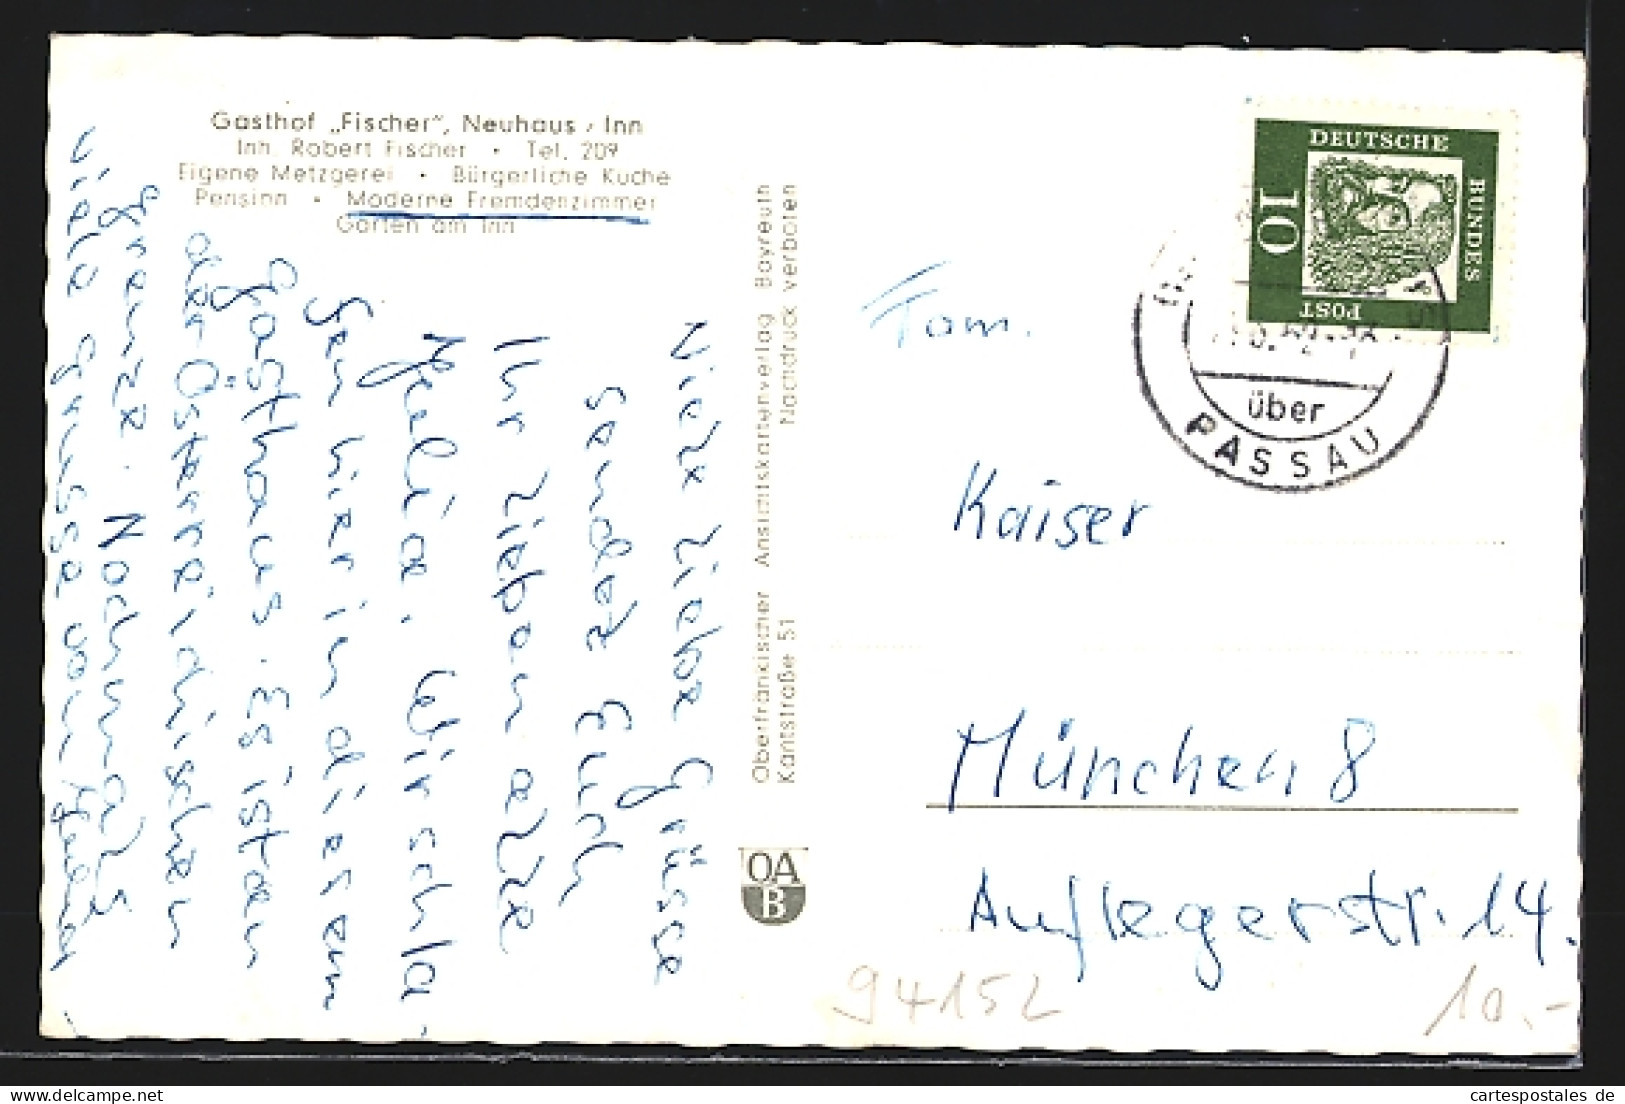 Gasthof „Fischer", Neuhaus / Inn
Inh. Robert Fischer • Tel. 209
Eigene Metzgerei • Bürgerliche Küche
Pension • Moderne Fremdenzimmer
Garten am Inn
Viele liebe Grüsse
sendet Euch
Ihr lieben alle
Wir schla-
fen hier in diesem
Gasthaus. Es ist an
der Österreichischen
Grenze. Nochmals
viele Grüsse von
Oberfränkischer Ansichtskartenverlag Bayreuth
Kantstraße 51 Nachdruck verboten
OA
B
DEUTSCHE
BUNDES
POST
10
über
PASSAU
Fam.
Kaiser
München 8
Auflegerstr. 14.
94152
10.-
cartespostales de